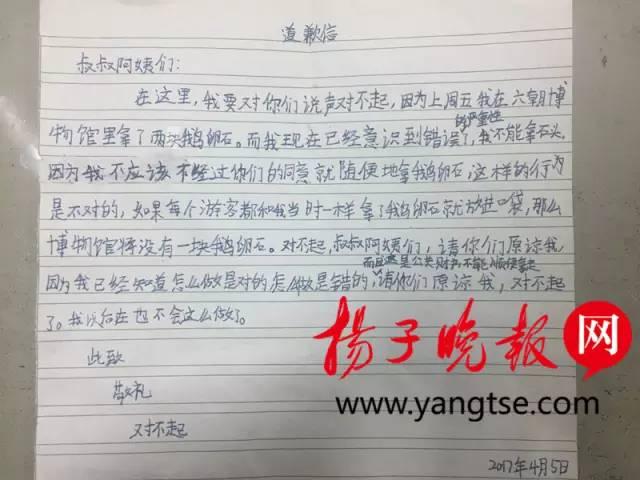 道歉信
叔叔阿姨们:
在这里,我要对你们说声对不起,因为上周五我在六朝博
物馆里拿了两块鹅卵石。而我现在已经意识到错误的严重性了,我不能拿石头,
因为我不应该不经过你们的同意就随便地拿鹅卵石,这样的行为
是不对的,如果每个游客都和我当时一样拿了鹅卵石就放进口袋,那么
博物馆将没有一块鹅卵石。对不起,叔叔阿姨们,请你们原谅我,
而且这是公共财物,不能顺便拿走
因为我已经知道怎么做是对的怎么做是错的,请你们原谅我,对不起
了。我以后在也不会这么做了。
此致
敬礼
对不起
2017年4月5日
扬子晚报网
www.yangtse.com